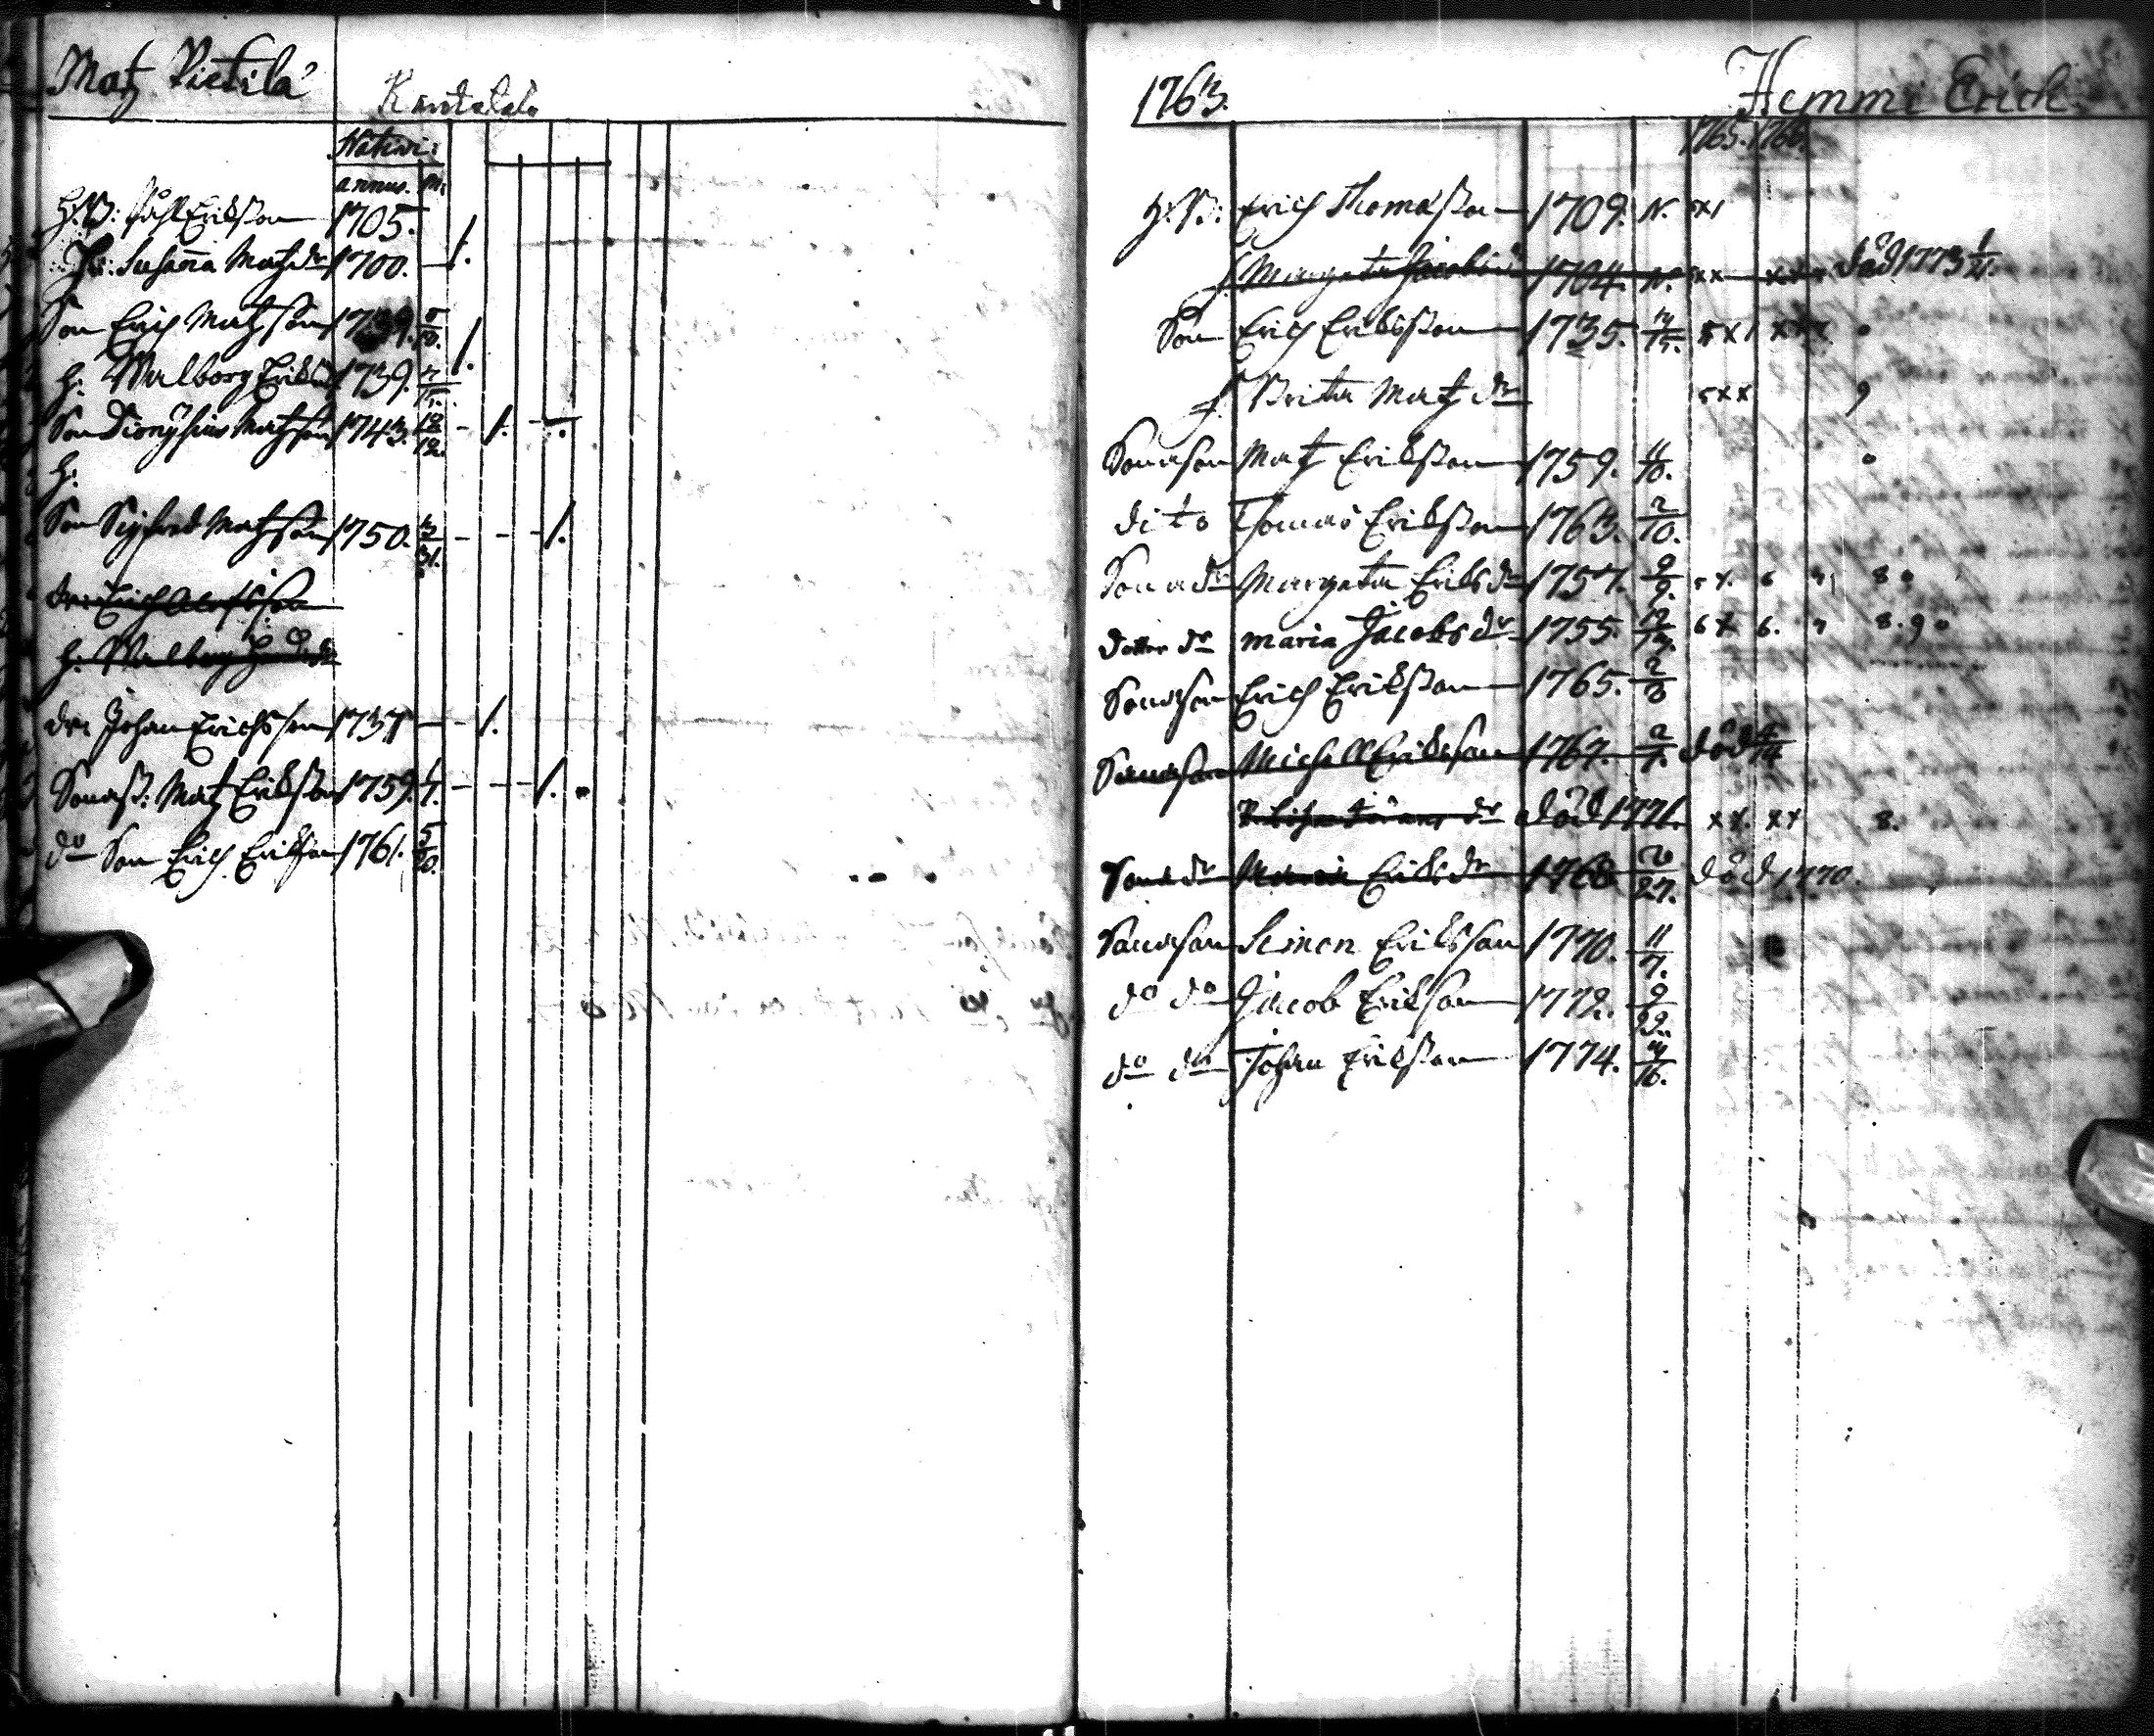 Matz Pietilä
Rantakylä
Nativi:
annus. M:
H.B: Påhl Erikßon 1705.
H: Susanna Matzdr 1700.
Son Erich Matzson
h: Walborg Eriksdr 1739.
Son Dionÿsius Matzson 1743. 18/12.
h:
Son Sigfred Matzson 1750. 3/31.
dr: Erich
h: Walborg
dr: Johan Erichsson 1737
Sonaß: Matz Erikßon 1759.
do Son Erich Erikßon 1761. 5/10.
1763. Hemmi Erich
1765. 1766.
H.B: Erich Thomaßon 1709. N. xx1
f Margeta Jacobsdr 1704. N. xx xxx död 1773 1/21.
Son Erich Erikßon 1735.
f Brita Matzdr xx
Sonason Matz Erikßon 1759. 11/10.
dito Thomas Erikßon 1763. 2/10.
Sonadr Margeta Eriksdr 1757. 9/9. 8
Dotter dr Maria Jacobsdr 1755. 6. 8. 9
Sonason Erich Erikßon 1765.
Sonason Michell Eriksson 1767. död
död 1771. xx. xx 8.
Sonadr Eriksdr 1768 död 1770.
Sonason Simon Eriksson 1770. 11/7.
do do Jacob Eriksson 1772. 9/29.
do do Johan Erikßon 1774.